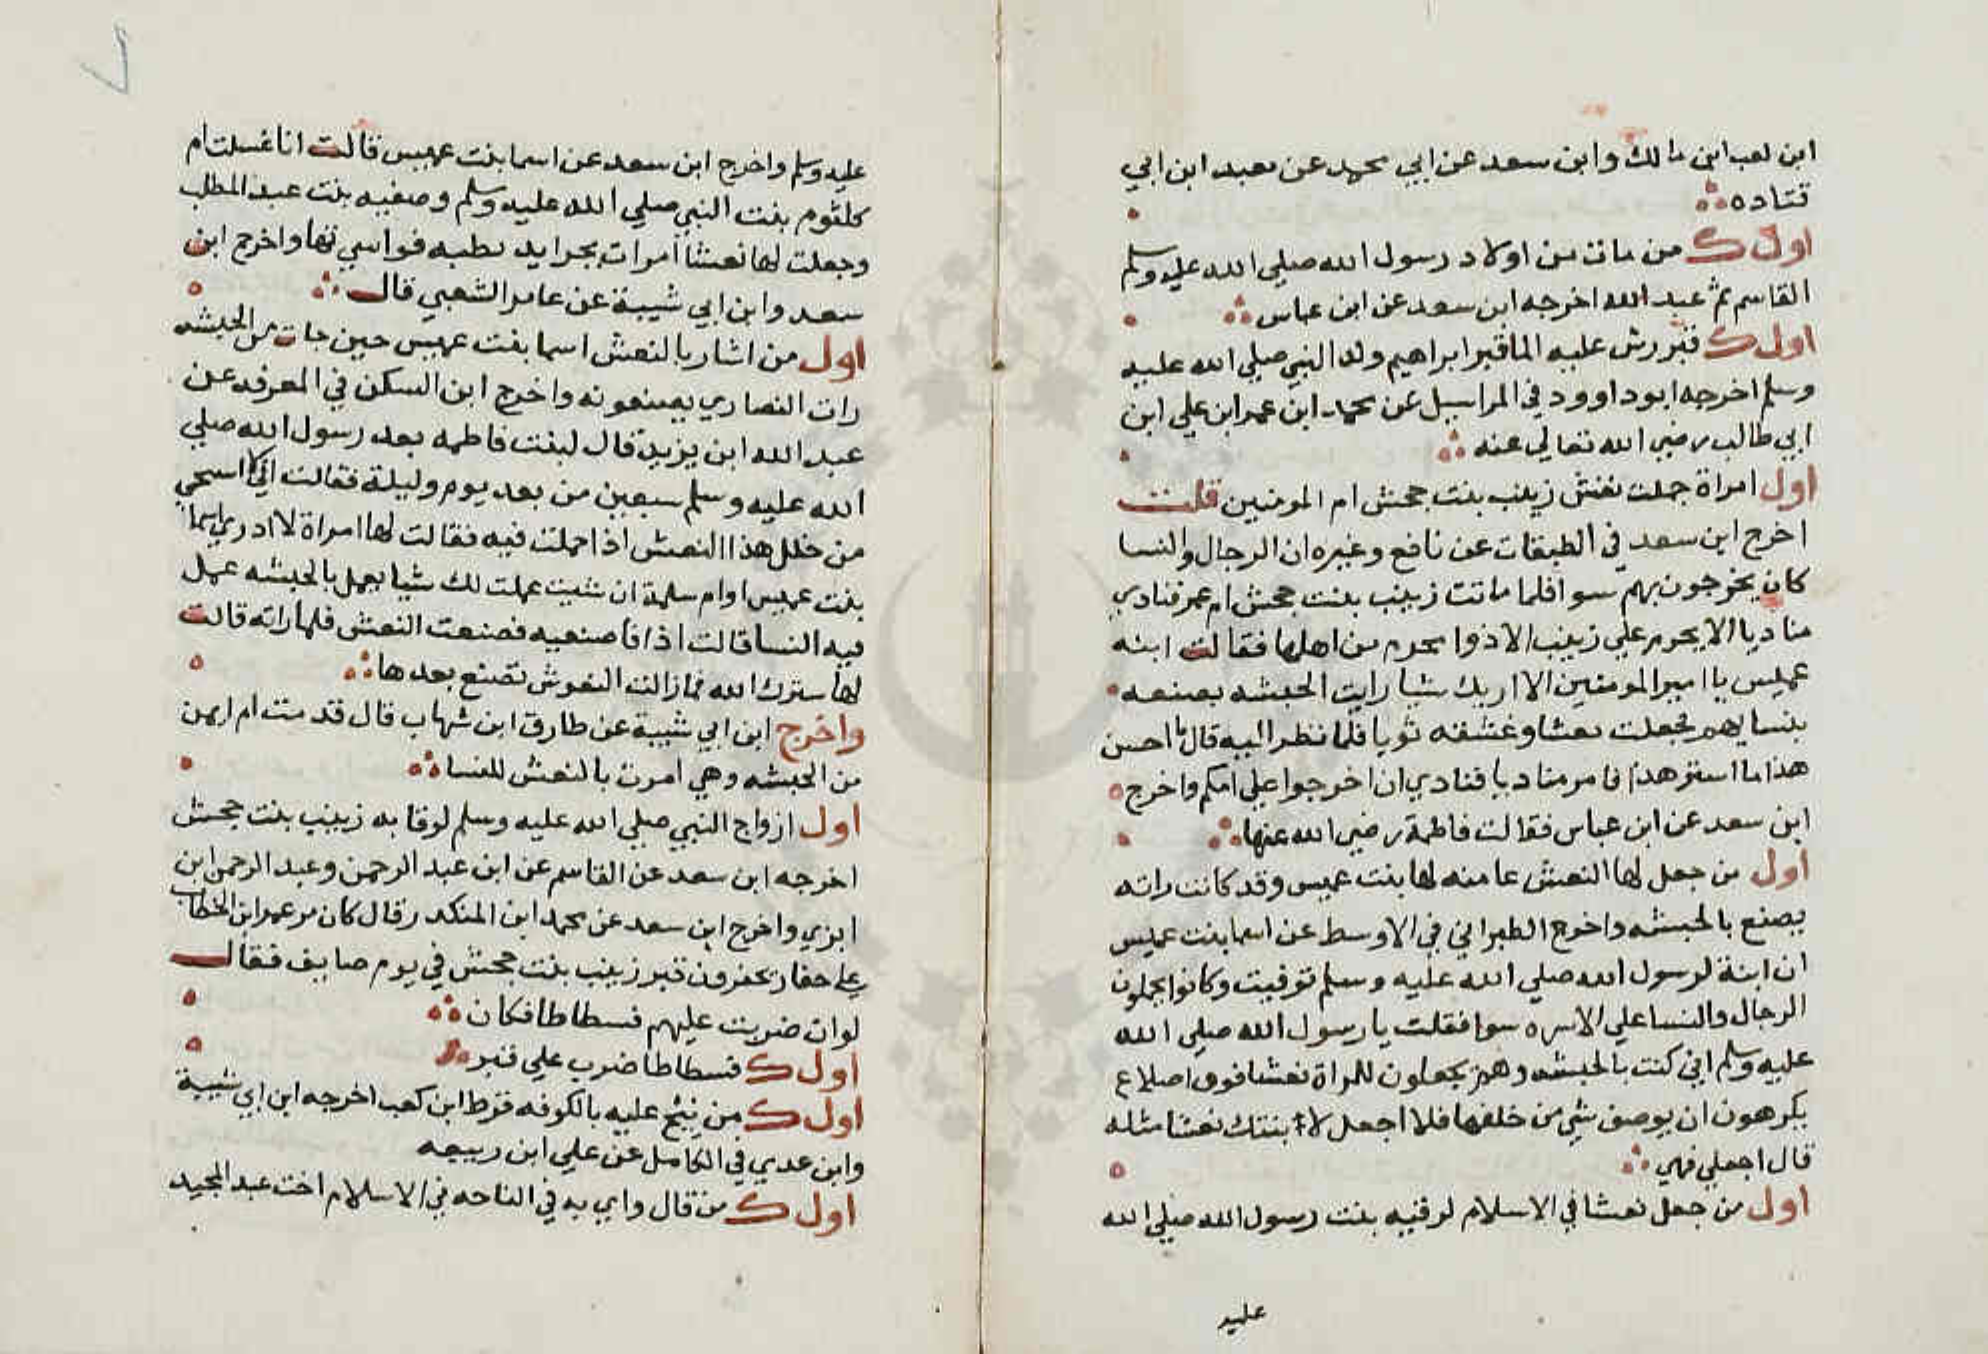 ابن كعب ابن مالك وابن سعد عن ابي محمد عن معبد ابن ابي
قتاده
اول ك من مات من اولاد رسول الله صلي الله عليه وسلم
القاسم ثم عبد الله اخرجه ابن سعد عن ابن عباس
اول ك قبر رش عليه الما قبر ابراهيم ولد النبي صلي الله عليه
وسلم اخرجه ابو داوود في المراسيل عن محمد ابن عمر ابن علي ابن
ابي طالب رضي الله تعالي عنه
اول امراة جملت نعش زينب بنت جحش ام المومنين قلت
اخرج ابن سعد في الطبقات عن نافع وغيره ان الرجال والنسا
كان يخرجون بهم سوا فلما ماتت زينب بنت جحش ام عمر فنادي
مناديا الا يحرم علي زينب الا ذوا محرم من اهلها فقالت ابنه
عميس يا امير المومنين الا اريك شيا رايت الحبشه يصنعه
بنسايهم فجعلت نعشا وغشته ثوبا فلما نظر اليه قال ما احسن
هذا ما استر هذا فامر مناديا فنادي ان اخرجوا علي امكم واخرج
ابن سعد عن ابن عباس فقالت فاطمة رضي الله عنها
اول من جعل لها النعش عامنه لها بنت عميس وقد كانت راته
يصنع بالحبشه واخرج الطبراني في الاوسط عن اسما بنت عميس
ان ابنة لرسول الله صلي الله عليه وسلم توفيت وكانوا يحملون
الرجال والنسا علي الاسره سوا فقلت يا رسول الله صلي الله
عليه وسلم اني كنت بالحبشه وهم يجعلون للمراة نعشا فوق اضلاع
يكرهون ان يوصف شي من خلفها فلا اجعل لابنتك نعشا مثله
قال اجعلي فهي
اول من جعل نعشا في الاسلام لرقيه بنت رسول الله صلي الله
عليه
عليه وسلم واخرج ابن سعد عن اسما بنت عميس قالت انا غسلت ام
كلثوم بنت النبي صلي الله عليه وسلم وصفيه بنت عبد المطلب
وجعلت لها نعشا امرات بجرايد فواسي تها واخرج ابن
سعد وابن ابي شيبة عن عامر الشعبي قال
اول من اشار بالنعش اسما بنت عميس حين جات من الحبشه
رات النصاري يصنعونه واخرج ابن السكن في المعرفه عن
عبد الله ابن يزيد قال لبنت فاطمه بعد رسول الله صلي
الله عليه وسلم سبعين من بعد يوم وليلة فقالت الي لا اسحي
من خلل هذا النعش اذا حملت فيه فقالت لها امراة لا ادري اسما
بنت عميس او ام سلمة ان شيت عملت لك شيا يعمل بالحبشه عمل
فيه النسا قالت اذا فاصنعيه فصنعت النعش فلما راته قالت
لها سترك الله فما زالت النعوش تصنع بعدها
واخرج ابن ابي شيبة عن طارق ابن شهاب قال قدمت ام ايمن
من الحبشه وهي امرت بالنعش للنسا
اول ازواج النبي صلي الله عليه وسلم لوقا به زينب بنت جحش
اخرجه ابن سعد عن القاسم عن ابن عبد الرحمن وعبد الرحمن ابن
ابزي واخرج ابن سعد عن محمد ابن المنكدر قال كان مر عمر ابن الخطاب
علي حفار يحفرون قبر زينب بنت جحش في يوم صايف فقال
لو ان ضربت عليهم فسطاطا فكان
اول ك فسطاطا ضرب علي قبر
اول ك من نيح عليه بالكوفه قرظ ابن كعب اخرجه ابن ابي شيبة
وابن عدي في الكامل عن علي ابن ربيعه
اول ك من قال واي يه في الناحه في الاسلام اخت عبد المجيد